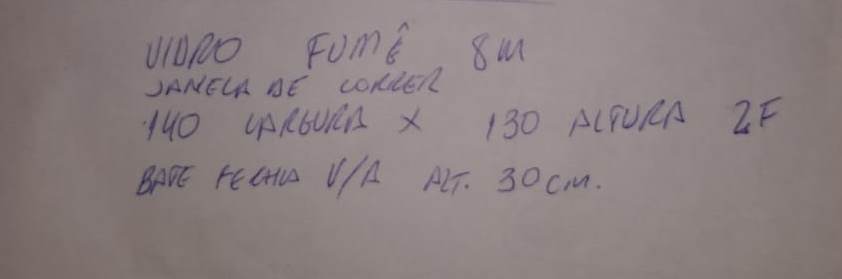 VIDRO FUMÊ 8M
JANELA DE CORRER
140 LARGURA X 130 ALTURA 2F
BATE FECHA V/A ALT. 30CM.